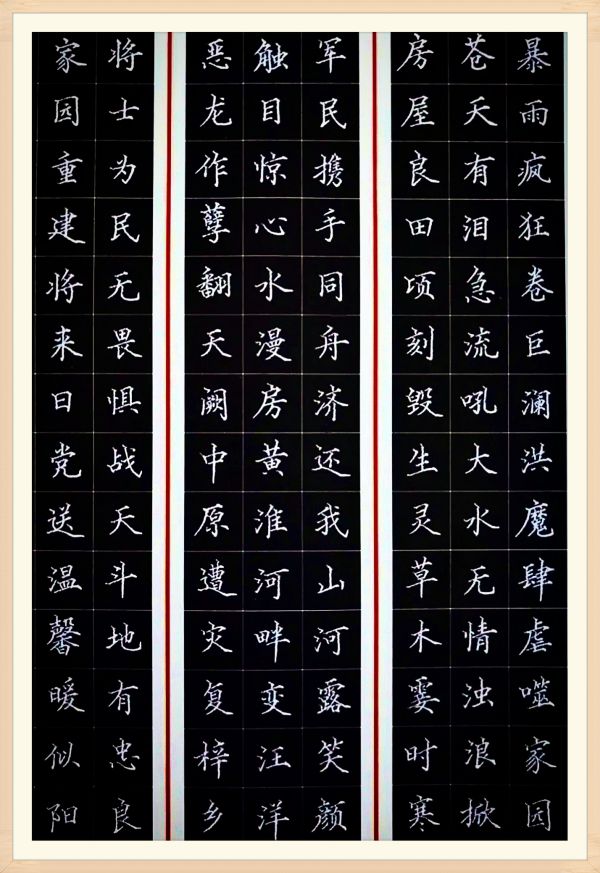 暴雨疯狂卷巨澜洪魔肆虐噬家园
苍天有泪急流吼大水无情浊浪掀
房屋良田顷刻毁生灵草木霎时寒
军民携手同舟济还我山河露笑颜
触目惊心水漫房黄淮河畔变汪洋
恶龙作孽翻天阙中原遭灾复梓乡
将士为民无畏惧战天斗地有忠良
家园重建将来日党送温馨暖似阳